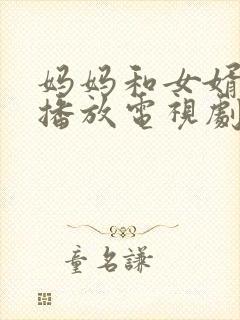 妈妈和女婿
播放電視劇
童名謙